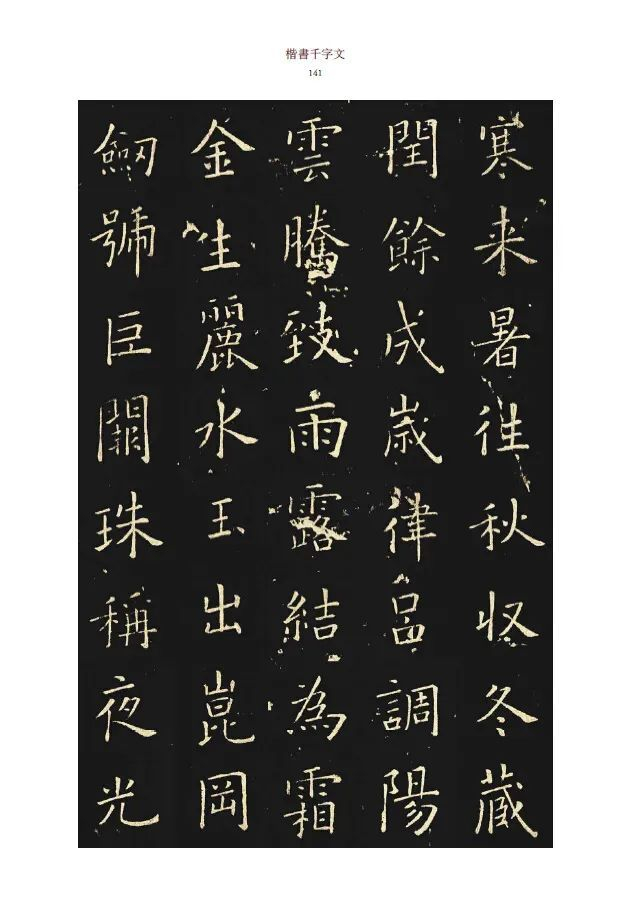 楷書千字文
141
寒来暑往秋收冬蔵
閏餘成歲律呂調陽
雲騰致雨露結為霜
金生麗水玉出崑岡
劒號巨闕珠稱夜光